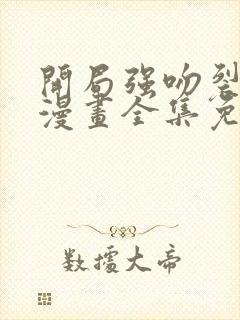 開局强吻裂
漫畫全集免
数據大帝